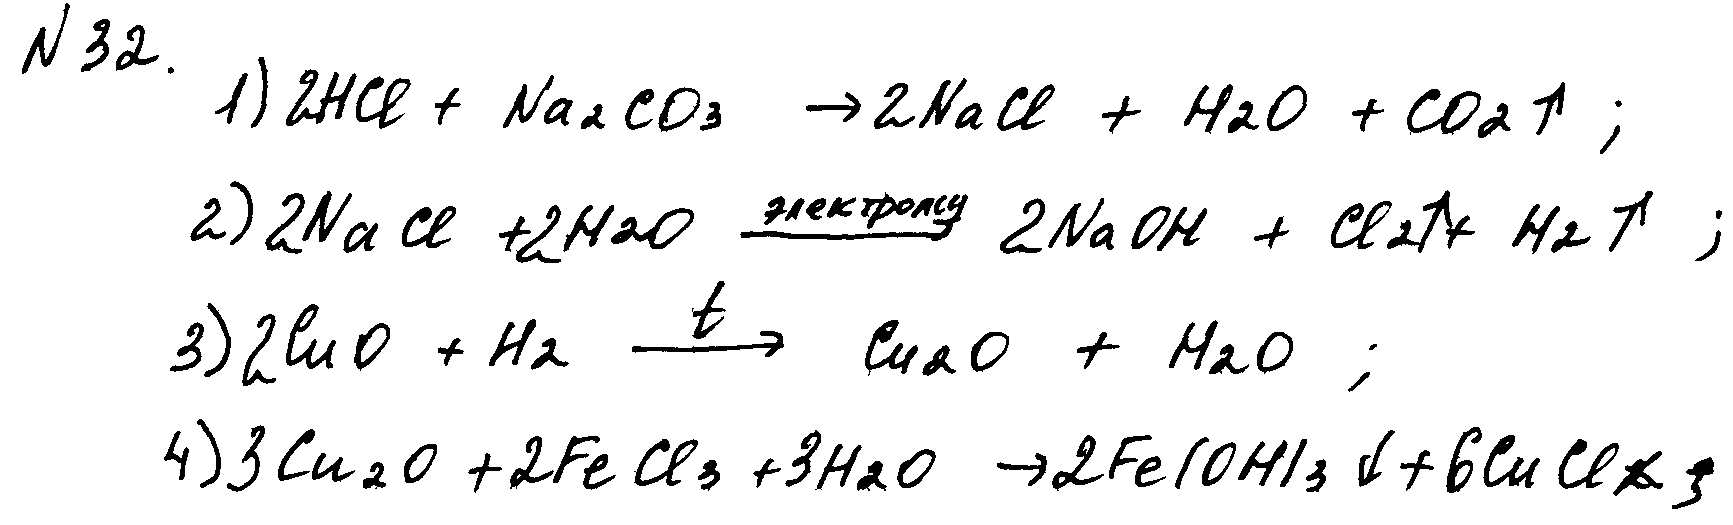 N 32.
1) 2HCl + Na2CO3 → 2NaCl + H2O + CO2↑ ;
2) 2NaCl + 2H2O электролиз → 2NaOH + Cl2↑ + H2↑ ;
3) 2CuO + H2 t → Cu2O + H2O ;
4) 3Cu2O + 2FeCl3 + 3H2O → 2Fe(OH)3↓ + 6CuCl ;